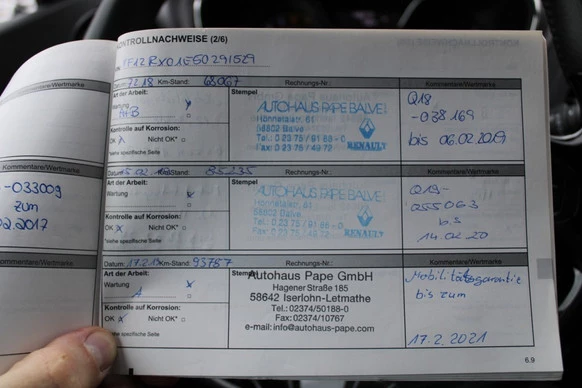 KONTROLLNACHWEISE (2/6)
Datum: 7.2.18 Km-Stand: 68067 Rechnungs-Nr.: Kommentare/Wertmarke
Art der Arbeit: Stempel
Wartung
A+B
Kontrolle auf Korrosion:
OK Nicht OK*
*siehe spezifische Seite
AUTOHAUS PAPE BALVE!
Hönnetalstr. 61
58802 Balve
Tel.: 0 23 75 / 91 88 - 0
Fax: 0 23 75 / 49 72
RENAULT
Q18
-038169
bis 06.02.2019
Kommentare/Wertmarke
-033009
zum
2.2017
Datum: Km-Stand: 85235 Rechnungs-Nr.: Kommentare/Wertmarke
Art der Arbeit: Stempel
Wartung
Kontrolle auf Korrosion:
OK Nicht OK*
*siehe spezifische Seite
AUTOHAUS PAPE BALVE!
Hönnetalstr. 61
58802 Balve
Tel.: 0 23 75 / 91 88 - 0
Fax: 0 23 75 / 49 72
RENAULT
Q19-
055063
bis
14.02.20
Kommentare/Wertmarke
Datum: Km-Stand: 93787 Rechnungs-Nr.: Kommentare/Wertmarke
Art der Arbeit: Stempel
Wartung
A
Kontrolle auf Korrosion:
OK Nicht OK*
*siehe spezifische Seite
Autohaus Pape GmbH
Hagener Straße 185
58642 Iserlohn-Letmathe
Tel.: 02374/50188-0
Fax: 02374/10767
e-mail: info@autohaus-pape.com
Mobilitätsgarantie
bis zum
17.2.2021
6.9